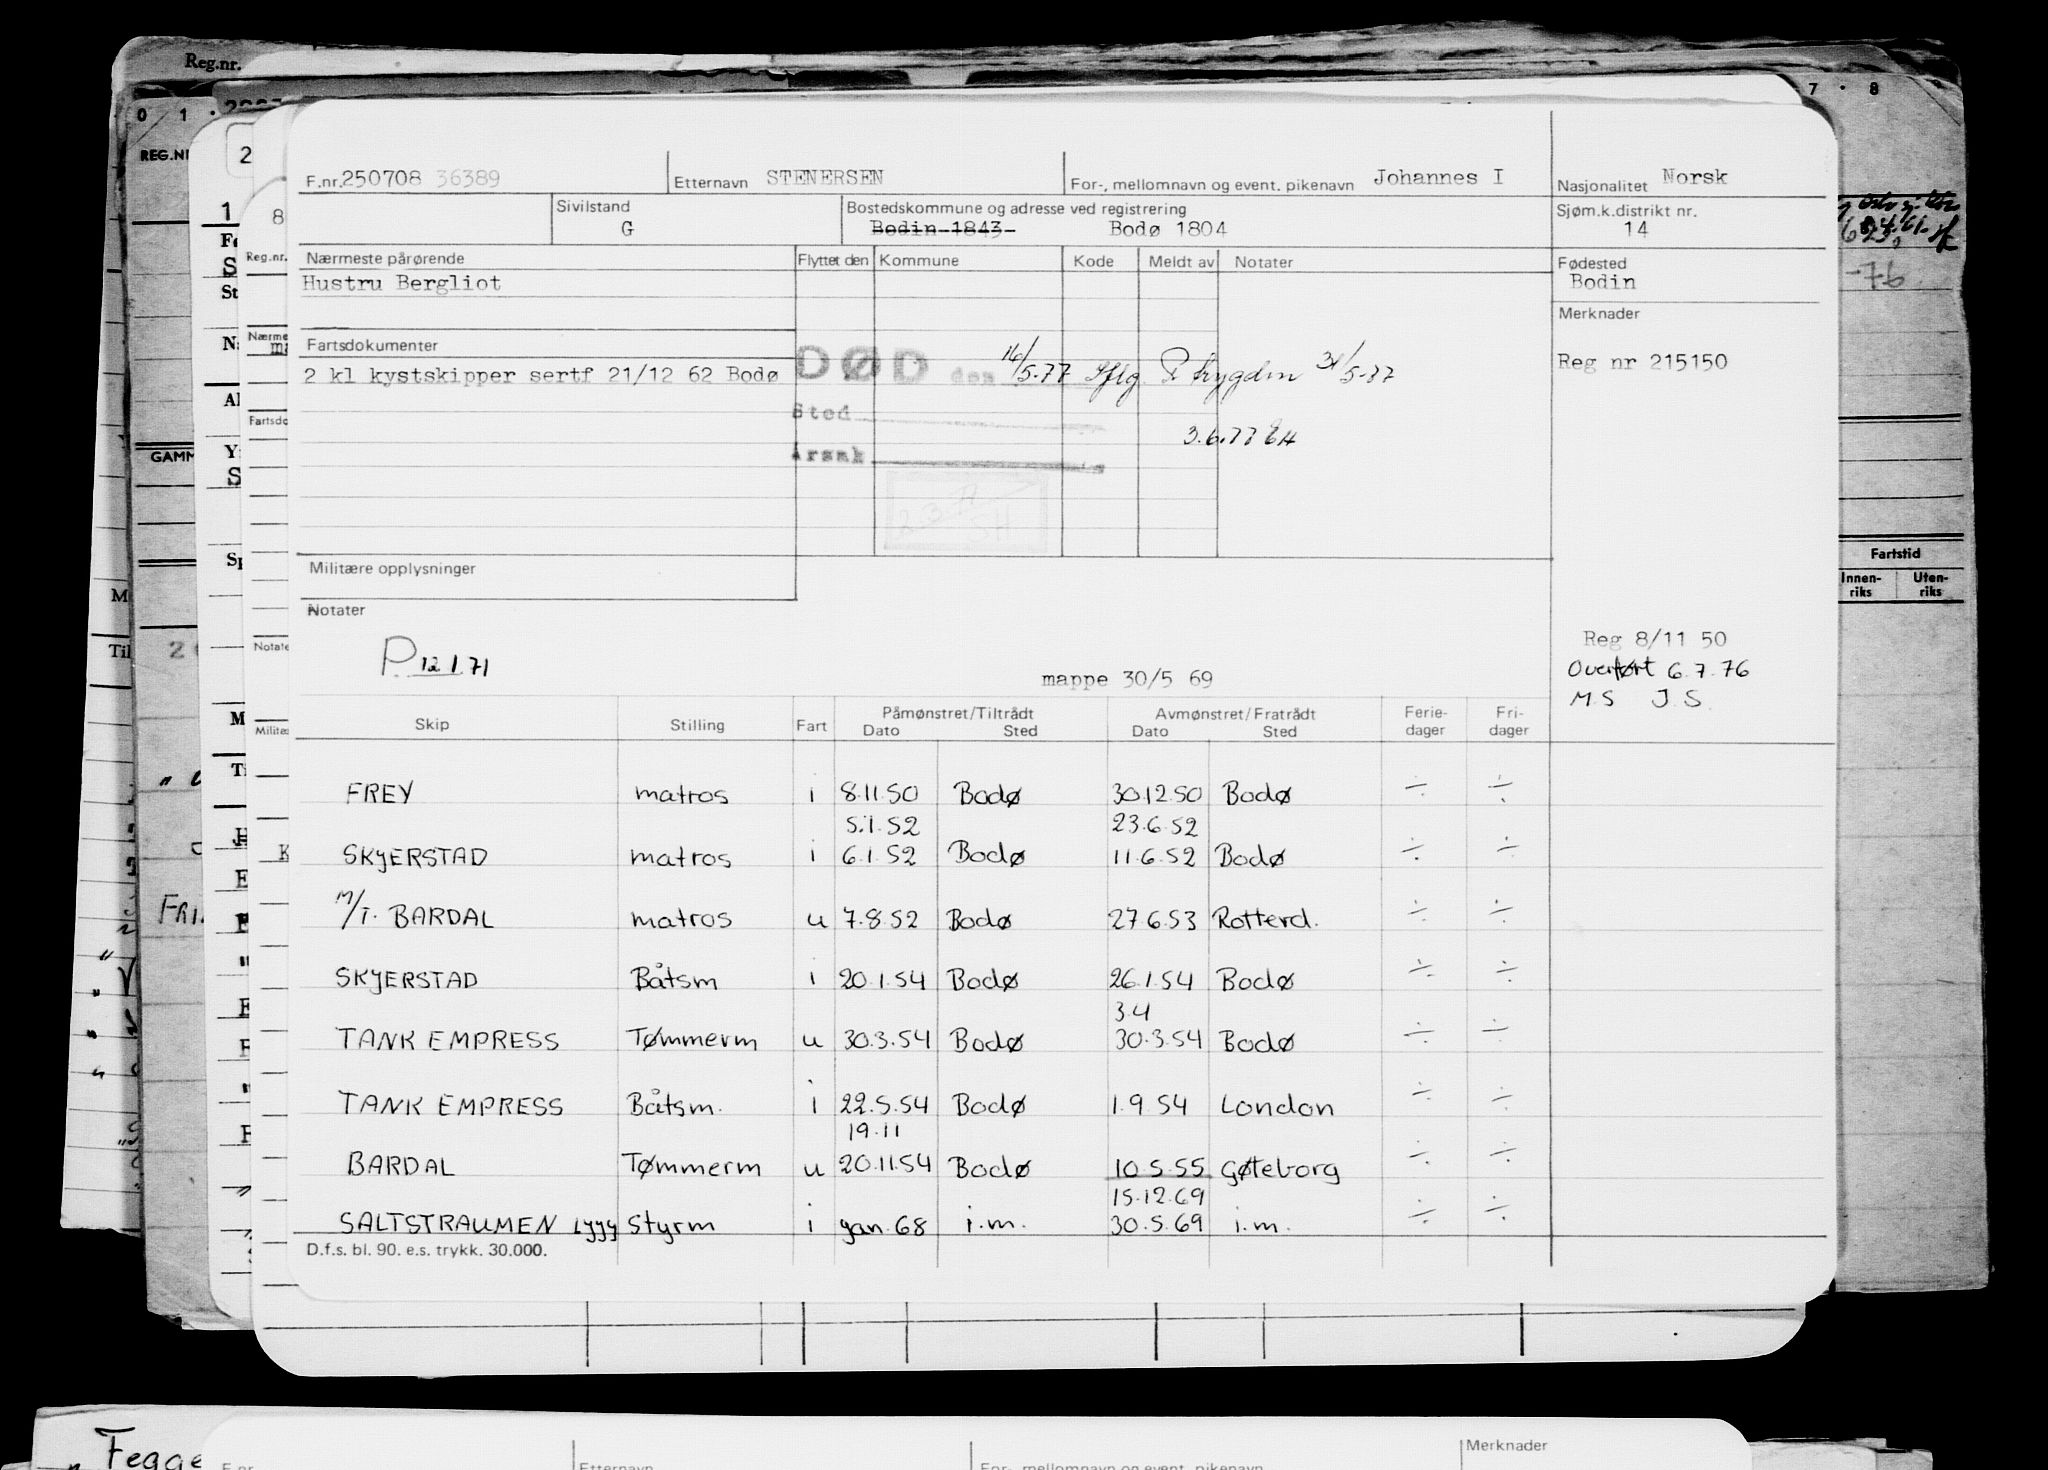 Reg.nr.
0 1
7 . 8
REG.NR
2
F.nr. 250708 36389 Etternavn STENERSEN For-, mellomnavn og event. pikenavn Johannes I Nasjonalitet Norsk
1 8
Sivilstand G Bostedskommune og adresse ved registrering Bodin 1843 Bodø 1804 Sjøm.k.distrikt nr. 14
Reg.nr. Nærmeste pårørende Flyttet den Kommune Kode Meldt av Notater Fødested
Hustru Bergliot Bodin
-76
Merknader
Fartsdokumenter
2 kl kystskipper sertf 21/12 62 Bodø DØD den 16/5-77 Iflg. Trygden 31/5-77 Reg nr 215150
Sted
3.6.77 EH
Årsak
GAMM
2.3.77
SH
Fartstid
Innen-riks Uten-riks
Militære opplysninger
Notater
P 12.1.71
mappe 30/5 69
Reg 8/11 50
Overført 6.7.76
M.S J.S.
Skip Stilling Fart Påmønstret/Tiltrådt Avmønstret/Fratrådt Ferie-dager Fri-dager
Dato Sted Dato Sted
FREY matros i 8.11.50 Bodø 30.12.50 Bodø ÷ ÷
5.1.52 23.6.52
SKJERSTAD matros i 6.1.52 Bodø 11.6.52 Bodø ÷ ÷
M/T. BARDAL matros u 7.8.52 Bodø 27.6.53 Rotterd. ÷ ÷
SKJERSTAD Båtsm i 20.1.54 Bodø 26.1.54 Bodø ÷ ÷
3.4
TANK EMPRESS Tømmerm u 30.3.54 Bodø 30.3.54 Bodø ÷ ÷
TANK EMPRESS Båtsm. i 22.5.54 Bodø 1.9.54 London ÷ ÷
19.11
BARDAL Tømmerm u 20.11.54 Bodø 10.5.55 Gøteborg ÷ ÷
15.12.69
SALTSTRAUMEN LYYY Styrm i jan.68 i.m. 30.5.69 i.m. ÷ ÷
D.f.s. bl. 90. e.s. trykk. 30.000.
Fegge
F.nr. Etternavn For-, mellomnavn og event. pikenavn Merknader